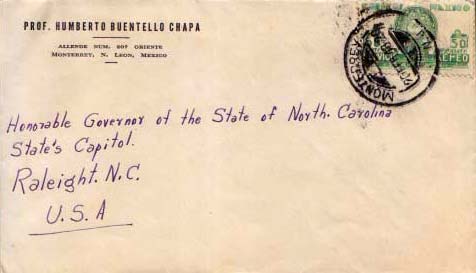 PROF. HUMBERTO BUENTELLO CHAPA
ALLENDE NUM. 207 ORIENTE
MONTERREY, N. LEON, MEXICO
MEXICO
AEREO
MONTERREY
Honorable Governor of the State of North. Carolina
State's Capitol.
Raleight. N.C.
U.S.A